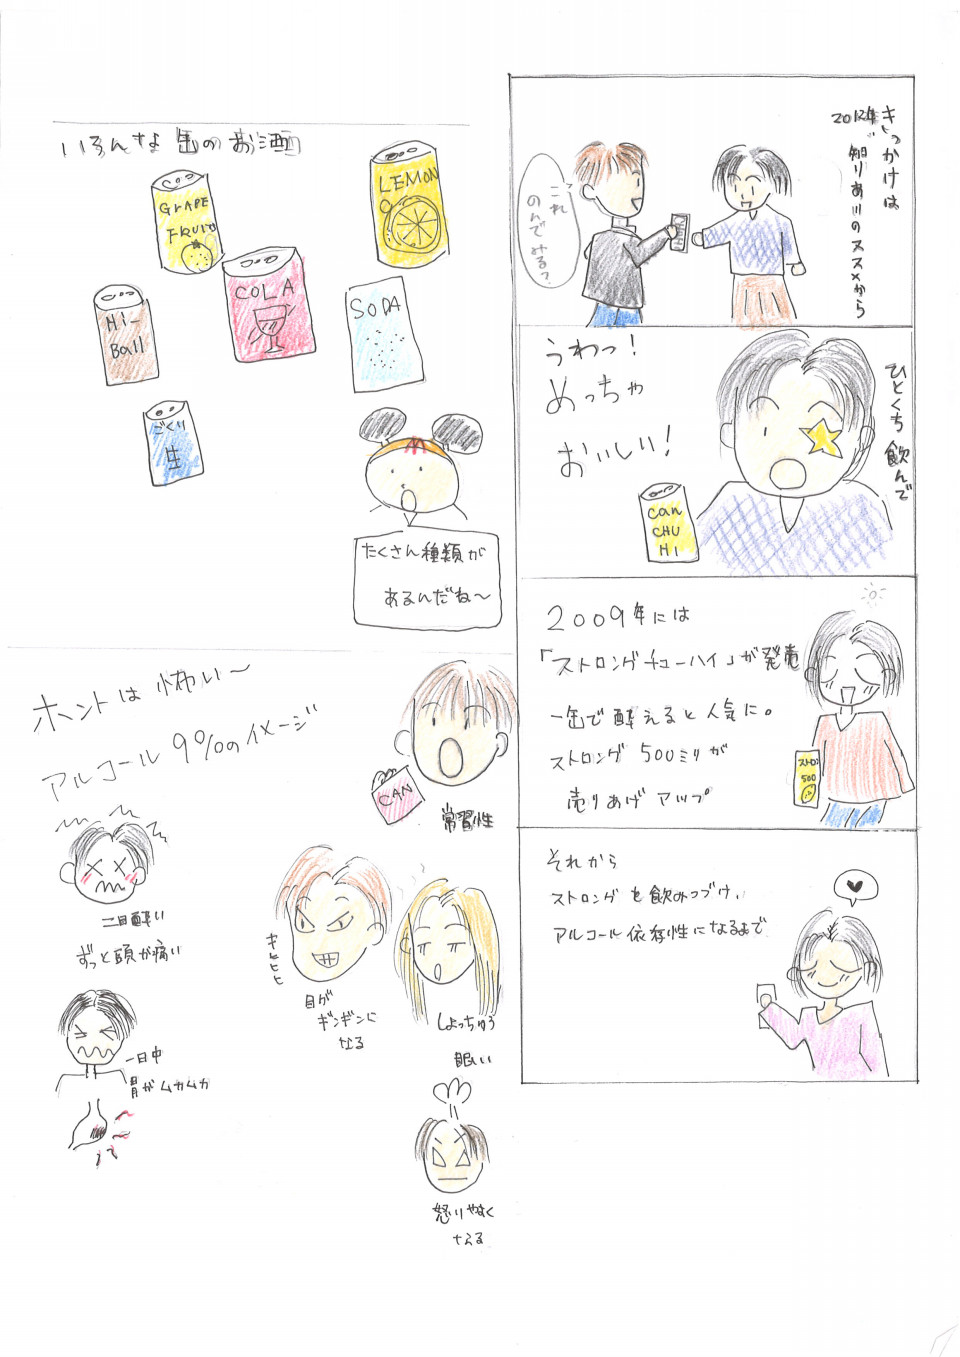 きっかけは
2012年 知りあいのススメから
これ
のんでみる?
ひとくち飲んで
うわっ!
めっちゃ
おいしい!
can
CHU
HI
2009年には
「ストロングチューハイ」が発売
一缶で酔えると人気に。
ストロング500ミリが
売りあげアップ
ストロン
500
それから
ストロングを飲みつづけ、
アルコール依存性になるまで
いろんな缶のお酒
GRAPE
FRUIT
LEMON
COLA
Hi-
Ball
SODA
ごくり
生
たくさん種類が
あるんだね〜
ホントは怖い〜
アルコール9%のイメージ
CAN
常習性
二日酔い
ずっと頭が痛い
キヒヒヒ
目が
ギンギンに
なる
しょっちゅう
眠い
一日中
胃がムカムカ
怒りやすく
なる